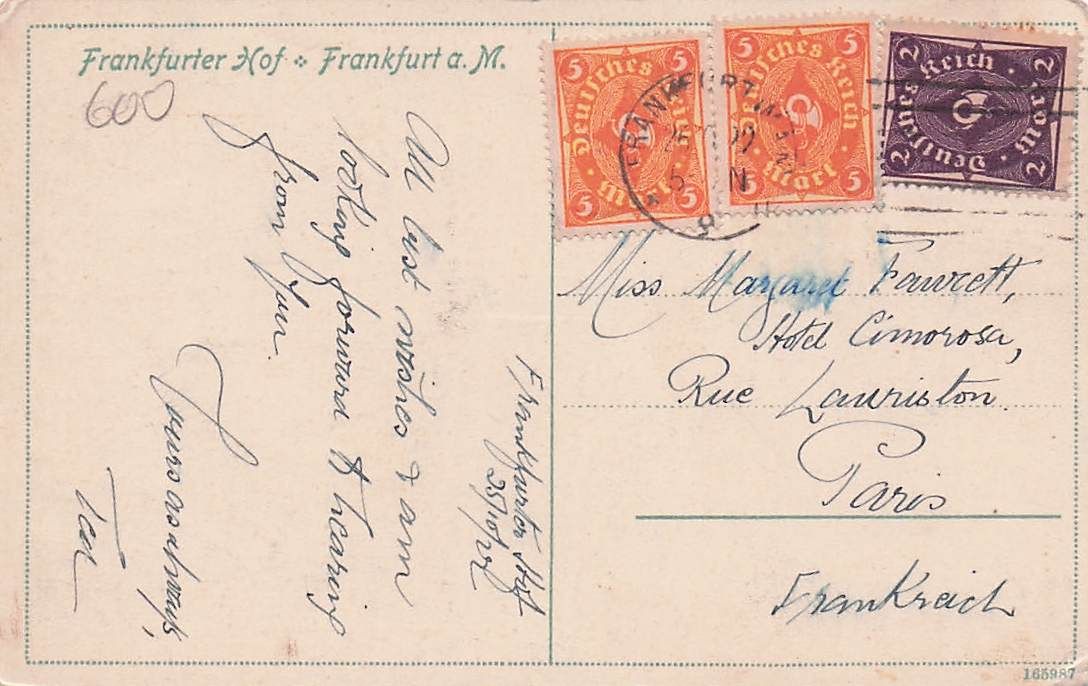 Frankfurter Hof ❖ Frankfurt a. M.
600
Frankfurter Hof
25/10/22
All best wishes & am
looking forward to hearing
from you.
Yours as always,
Ted
5 5
Deutsches Reich
Mark
5 5
5 5
Deutsches Reich
Mark
5 5
2 2
Deutsches Reich
Mark
2 2
FRANKFURT (MAIN)
Miss Margaret Fawcett,
Hotel Cimorosa,
Rue Lauriston
Paris
Frankreich
165987